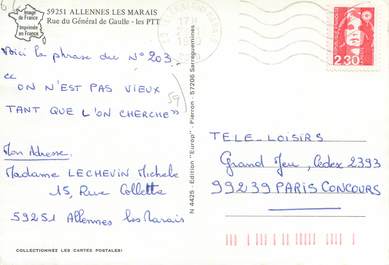 59251 ALLENNES LES MARAIS
Rue du Général de Gaulle - les PTT
Image
de France
Imprimée
en France
Voici la phrase du N° 203.
« ON N'EST PAS VIEUX
TANT QUE L'ON CHERCHE »
59
Mon Adresse.
Madame LECHEVIN Michele
15, Rue Collette
59251 Allennes les Marais
COLLECTIONNEZ LES CARTES POSTALES!
N 4425 - Edition "Europ" - Pierron - 57206 Sarreguemines
2,30
TELE-LOISIRS
Grand Jeu, Cedex 2393
99239 PARIS CONCOURS